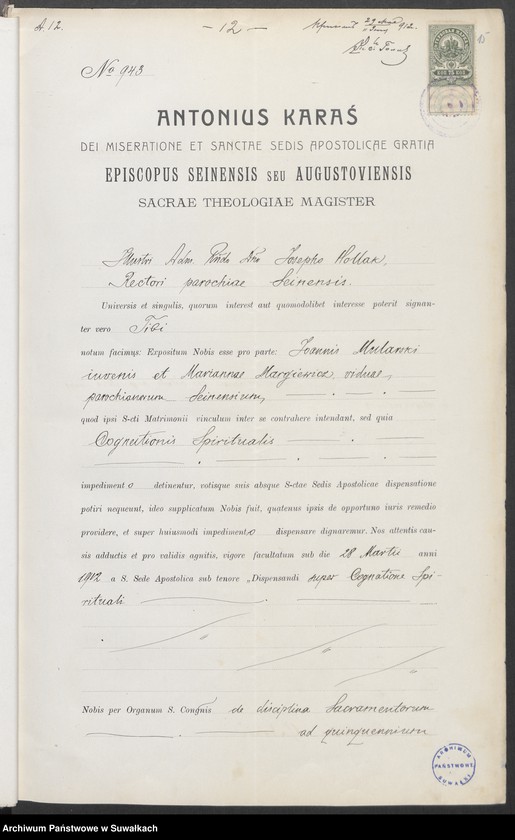 A. 12.
— 12 —
1912.
15
No 943
ANTONIUS KARAŚ
DEI MISERATIONE ET SANCTAE SEDIS APOSTOLICAE GRATIA
EPISCOPUS SEINENSIS SEU AUGUSTOVIENSIS
SACRAE THEOLOGIAE MAGISTER
Illustri Adm. Rndo Dno Josepho Wollak,
Rectori parochiae Seinensis.
Universis et singulis, quorum interest aut quomodolibet interesse poterit signan-
ter vero Tibi
notum facimus: Expositum Nobis esse pro parte: Joannis Mularski
iuvenis et Mariannae Margiewicz viduae,
parochianorum Seinensium,
quod ipsi S-cti Matrimonii vinculum inter se contrahere intendant, sed quia
Cognationis Spiritualis
impedimento detinentur, votisque suis absque S-ctae Sedis Apostolicae dispensatione
potiri nequeunt, ideo supplicatum Nobis fuit, quatenus ipsis de opportuno iuris remedio
providere, et super huiusmodi impedimento dispensare dignaremur. Nos attentis cau-
sis adductis et pro validis agnitis, vigore facultatum sub die 28 Martii anni
1912 a S. Sede Apostolica sub tenore „Dispensandi super Cognatione Spi-
rituali
Nobis per Organum S. Congnis de disciplina Sacramentorum
ad quinquennium
ARCHIWUM PAŃSTWOWE SUWAŁKI
Archiwum Państwowe w Suwałkach